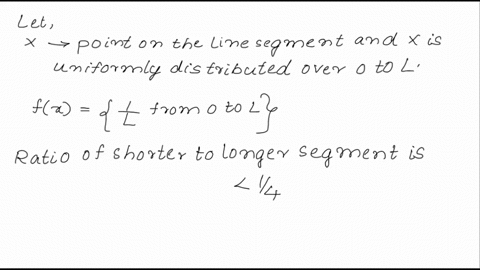 Let,
x → point on the line segment and x is
uniformly distributed over 0 to L.
f(x) = { 1/L from 0 to L }
Ratio of shorter to longer segment is
< 1/4